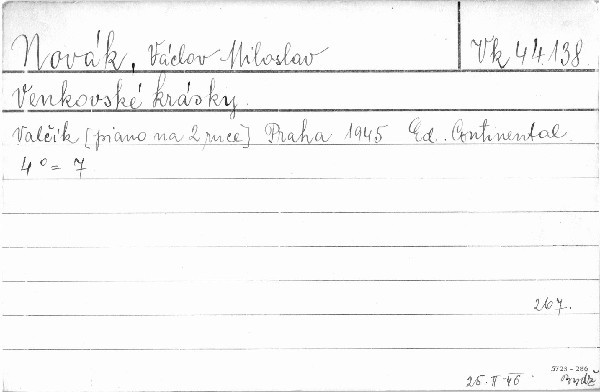 Novák, Václav Miloslav Vk 44.138
Venkovské krásky.
Valčík [piano na 2 ruce] Praha 1945 Ed. Continental.
4° = 7
267.
5723 – 286
25. II 46